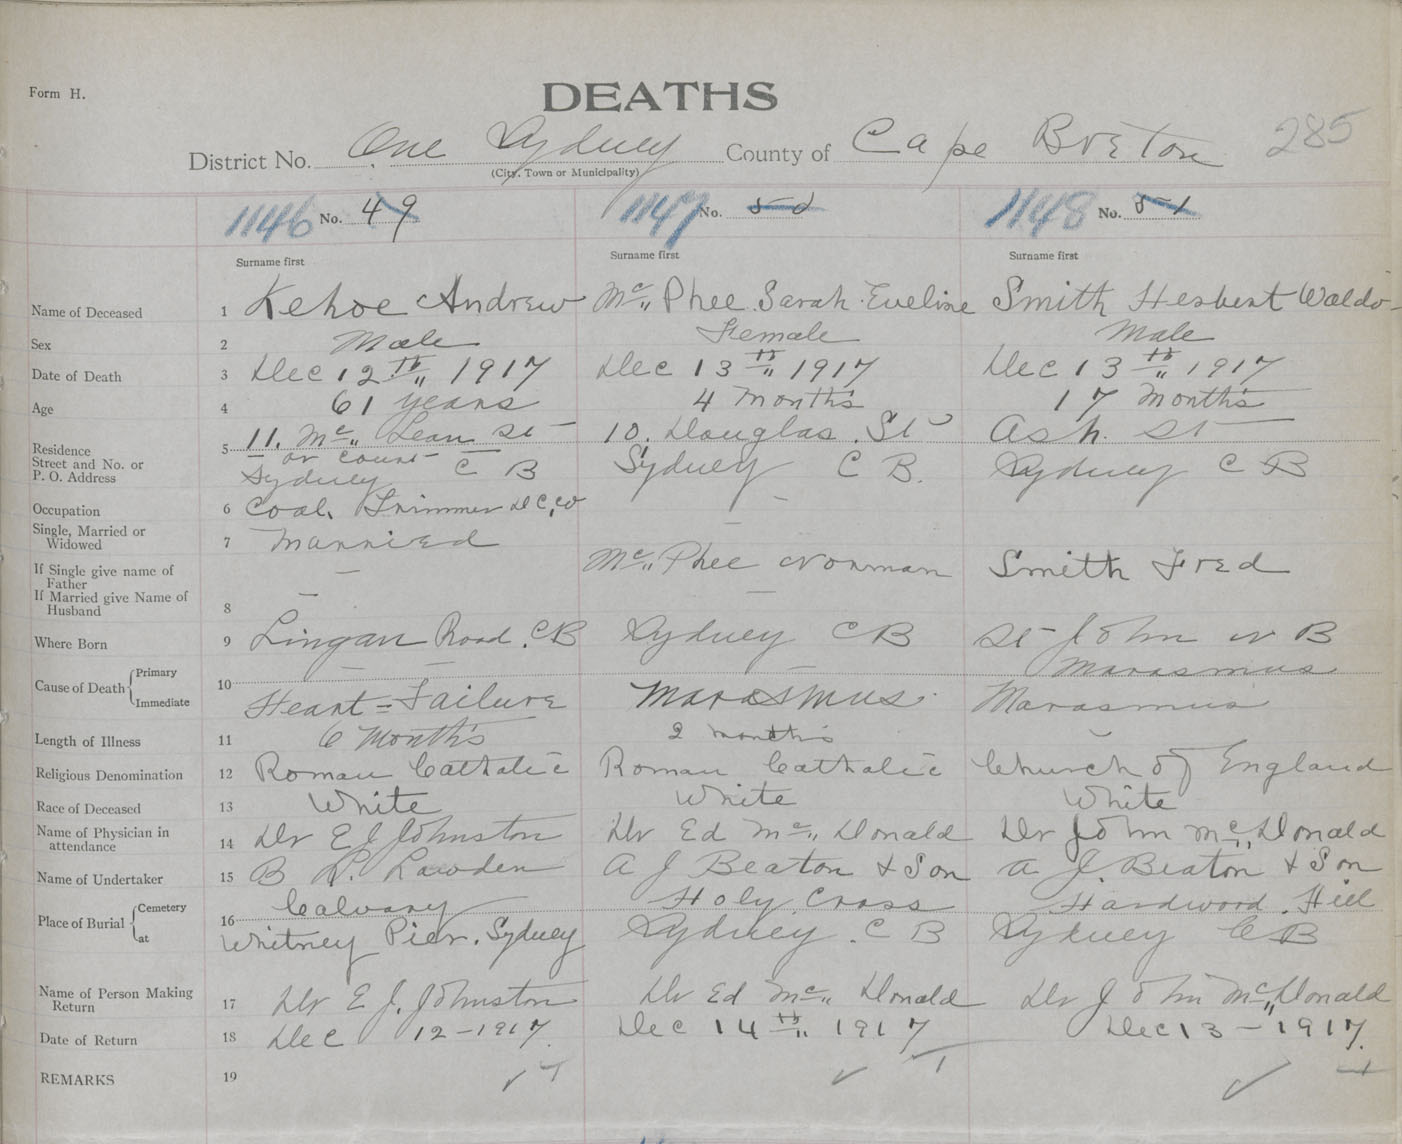 Form H.
DEATHS
285
District No. One Sydney County of Cape Breton
(City, Town or Municipality)
1146 No. 49 1147 No. 50 1148 No. 51
Surname first Surname first Surname first
Name of Deceased 1 Kehoe Andrew Mc„ Phee Sarah Eveline Smith Herbert Waldo
Sex 2 Male Female Male
Date of Death 3 Dec 12th„ 1917 Dec 13th„ 1917 Dec 13th„ 1917
Age 4 61 years 4 Months 17 Months
Residence 5 11. Mc„ Lean St 10. Douglas St Ash St
Street and No. or or court
P. O. Address Sydney C B Sydney C B. Sydney C B
Occupation 6 Coal Trimmer D C, Co -
Single, Married or
Widowed 7 Married -
If Single give name of
Father - Mc„ Phee Norman Smith Fred
If Married give Name of
Husband 8 - -
Where Born 9 Lingan Road. CB Sydney CB St John N B
Cause of Death Primary 10 - - - Marasmus
Immediate Heart=Failure Marasmus. Marasmus
Length of Illness 11 6 Months 2 months -
Religious Denomination 12 Roman Catholic Roman Catholic Church of England
Race of Deceased 13 White White White
Name of Physician in
attendance 14 Dr E J Johnston Dr Ed Mc„ Donald Dr John Mc„ Donald
Name of Undertaker 15 B Lowden A J Beaton & Son A J. Beaton & Son
Place of Burial Cemetery 16 Calvary Holy Cross Hardwood Hill
at Whitney Pier. Sydney Sydney. C B Sydney CB
Name of Person Making
Return 17 Dr E J. Johnston Dr Ed Mc„ Donald Dr John Mc„ Donald
Date of Return 18 Dec 12-1917. Dec 14th„ 1917 Dec 13-1917.
REMARKS 19 ✓ ✓ ✓